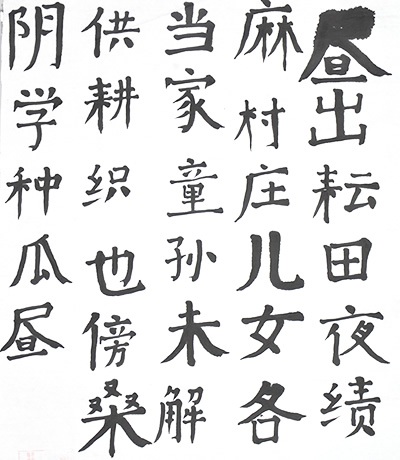 昼出耘田夜绩
麻村庄儿女各
当家童孙未解
供耕织也傍桑
阴学种瓜昼